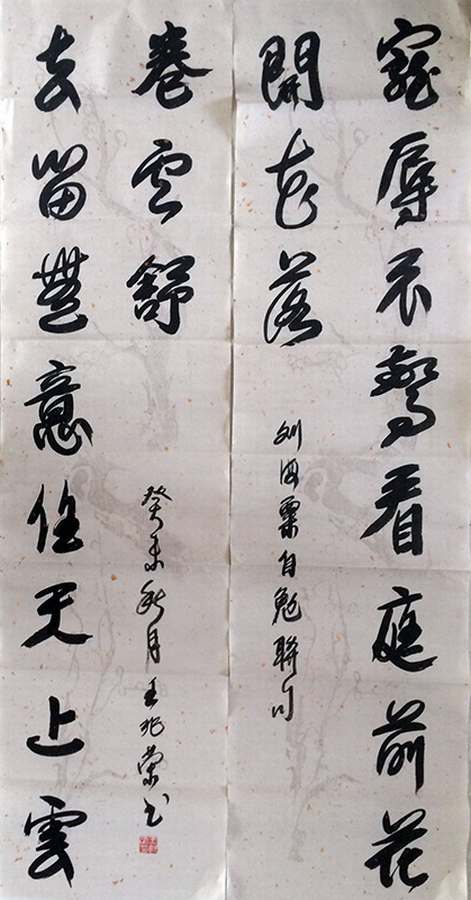 寵辱不驚看庭前花
開花落
刘海粟自勉聯句
去留無意任天上雲
卷云舒
癸未秋月王兆榮书